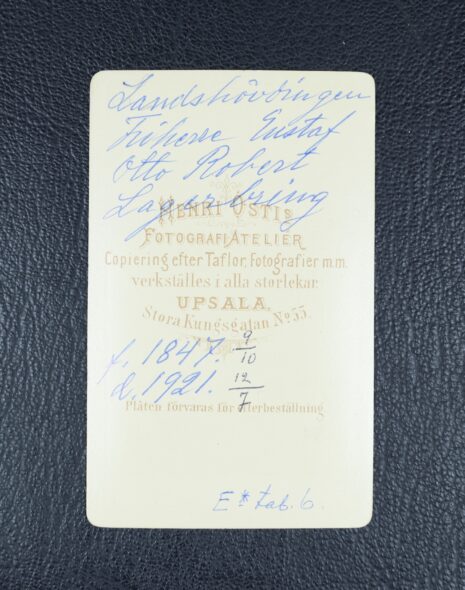 Landshövdingen
Friherre Gustaf
Otto Robert
Lagerbring
HENRI OSTI
FOTOGRAFIATELIER
Copiering efter Taflor, fotografier m.m.
verkställes i alla storlekar.
UPSALA,
Stora Kungsgatan No 55.
f. 1847. 9/10
d. 1921. 12/7
Plåten förvaras för efterbeställning.
E* tab. 6.